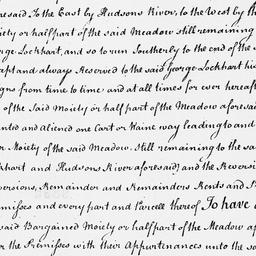 resaid To the East by Hudsons River, to the West by the
iety or half part of the said Meadow still remaining
rge Lockhart, and so to run Southerly to the end of the
apt and always Reserved to the said George Lockhart his
igns from time to time and at all times for ever hereaft
of the said Moiety or half part of the Meadow aforesai
nted and aliened one Cart or Waine way leading to and
r Moiety of the said Meadow still remaining to the sa
khart and Hudsons River aforesaid and the Reversi
versions, Remainder and Remainders Rents and
emisses and every part and Parcell thereof To have a
said Bargained Moiety or half part of the Meadow a
r the Premisses with their Appurtenances unto the s